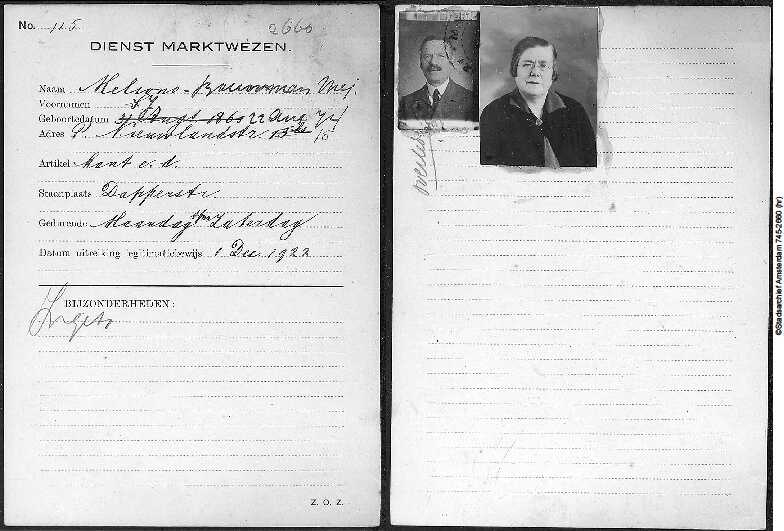 No. 115
2660
DIENST MARKTWEZEN.
Naam Melsono - Bouwman Mej.
Voornamen
Geboortedatum 22 Aug
Adres P. Nieuwlandstr. 15
Artikel Kant e.d.
Staanplaats Dapperstr.
Gedurende Maandag t/m Zaterdag
Datum uitreiking legitimatiebewijs 1 Dec. 1922
BIJZONDERHEDEN:
Z. O. Z.
overleden
©Stadsarchief Amsterdam 745-2660 (hr)